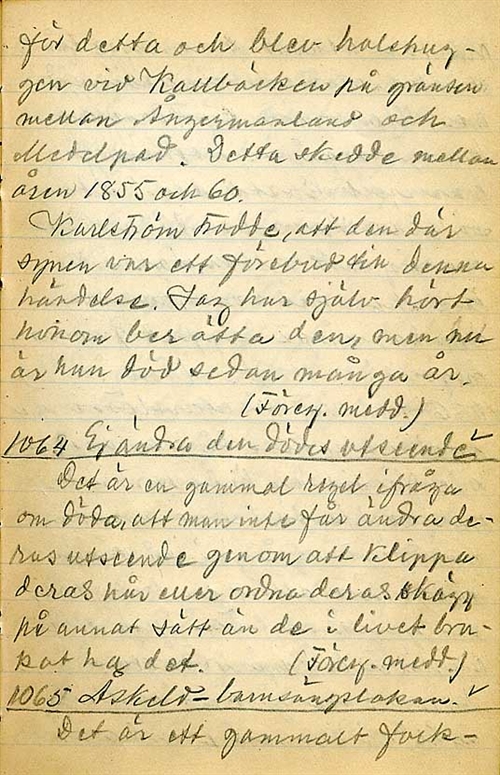 för detta och blev halshug-
gen vid Kallbäcken på gränsen
mellan Ångermanland och
Medelpad. Detta skedde mellan
åren 1855 och 60.
Karlström trodde, att den där
synen var ett förebud till denna
händelse. Jag har själv hört
honom berätta den, men nu
är han död sedan många år.
(Föreg. medd.)
1064 Ej ändra den dödes utseende
Det är en gammal regel ifråga
om döda, att man inte får ändra de-
ras utseende genom att klippa
deras hår eller ordna deras skägg
på annat sätt än de i livet bru-
kat ha det. (Föreg. medd.)
1065 Åskeld – barnsängslakan.
Det är ett gammalt folk-